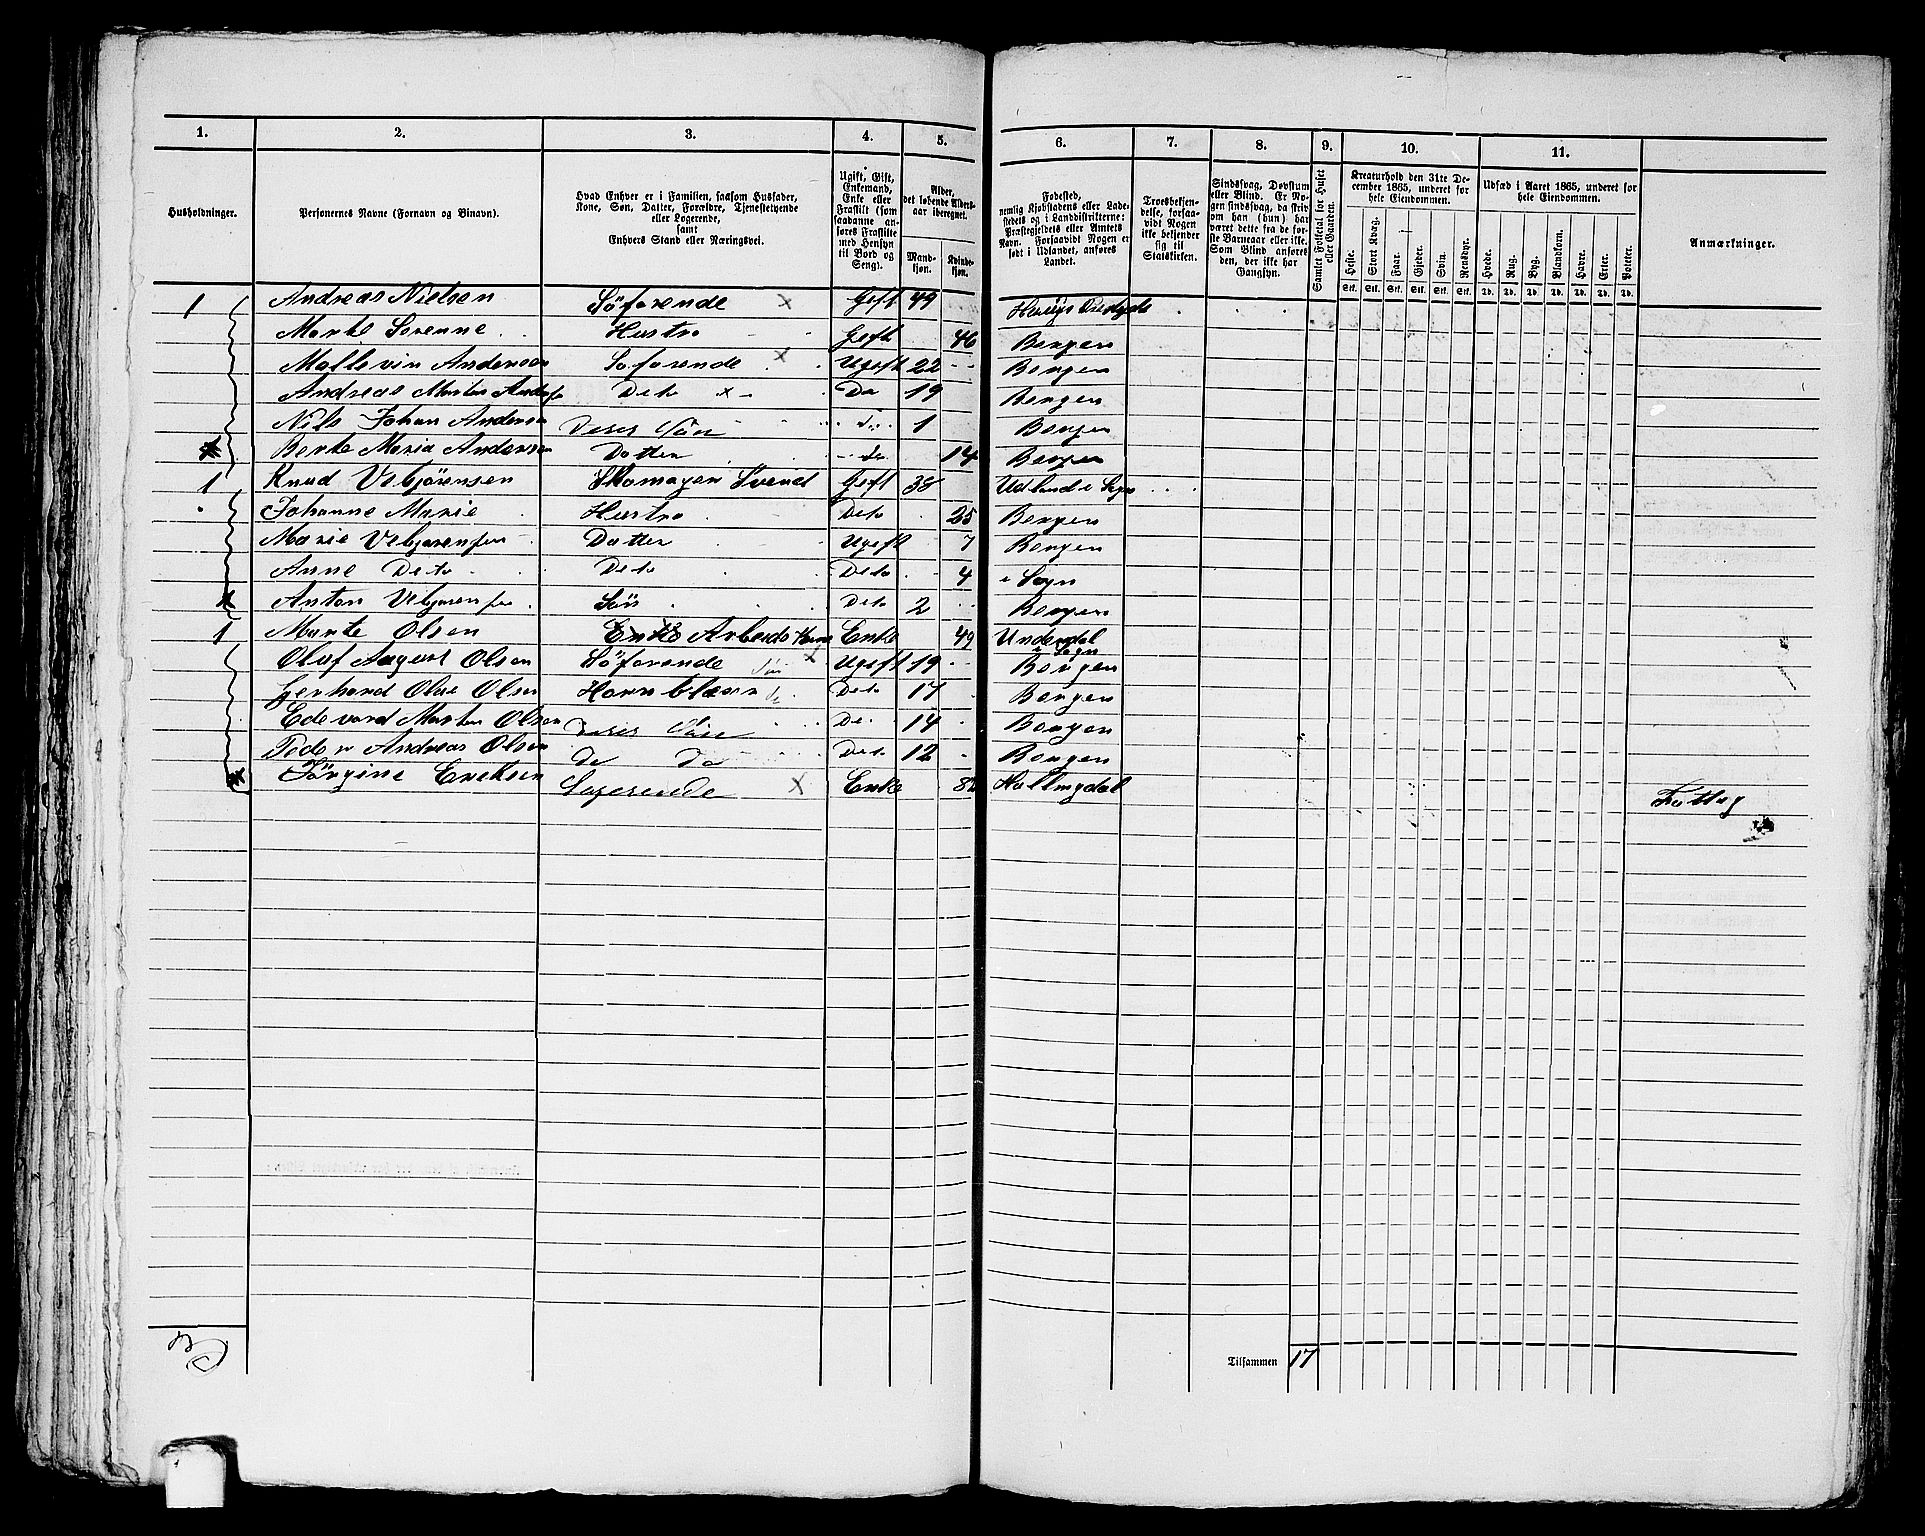 1. 2. 3. 4. 5. 6. 7. 8. 9. 10. 11.
Husholdninger.
Personernes Navne (Fornavn og Binavn).
Hvad Enhver er i Familien, saasom Husfader,
Kone, Søn, Datter, Forældre, Tjenestetyende
eller Logerende,
samt
Enhvers Stand eller Næringsvei.
Ugift, Gift,
Enkemand,
Enke eller
Fraskilt (som
saadanne an-
føres Fraskilte
med Hensyn
til Bord og
Seng).
Alder,
det løbende Alders-
aar iberegnet.
Mand-
kjøn.
Kvinde-
kjøn.
Fødested,
nemlig Kjøbstadens eller Lade-
stedets og i Landdistrikterne:
Præstegjeldets eller Amtets
Navn. Forsaavidt Nogen er
født i Udlandet, anføres
Landet.
Troesbekjen-
delse, forsaa-
vidt Nogen
ikke bekjender
sig til
Statskirken.
Sindssvag, Døvstum
eller Blind. Er No-
gen sindssvag, da skriv
om han (hun) har
været dette fra de før-
ste Barneaar eller ikke.
Som Blind anføres
den, der ikke har
Gangsyn.
Samlet Folketal for Huset
eller Gaarden.
Kreaturhold den 31te De-
cember 1865, underet for
hele Eiendommen.
Heste. Stort Kvæg. Faar. Gjeder. Svin. Rensdyr.
Stk. Stk. Stk. Stk. Stk. Stk.
Udsæd i Aaret 1865, underet for
hele Eiendommen.
Hvede. Rug. Byg. Blandkorn. Havre. Erter. Poteter.
Td. Td. Td. Td. Td. Td. Td.
Anmærkninger.
1 Andreas Nielsen Søfarende x Gift 49
Marte Serenne Hustro Gift 46 Bergen
Andersen Søfarende x Ugift 22 Bergen
Andreas Martin Deto x Do 19 Bergen
Nils Johan Andersen Deres Søn do 1 Bergen
Berte Maria Andersen Datter do 14 Bergen
1 Knud Vebjørensen Skomager Svend Gift 38 i Sogn
Johanne Marie Hustro Deto 25 Bergen
Marie Vebjørensen Datter Ugift 7 Bergen
Anne Deto Deto Deto 4 i Sogn
Anton Vebjørensen Søn Deto 2 Bergen
1 Marte Olsen Enke Arbeids Kone Enke 49 Underdal
i Sogn
Oluf August Olsen Søfarende Søn x Ugift 19 Bergen
Gerhard Olae Olsen Hornblæser do Deto 17 Bergen
Edevard Martin Olsen Deres Søn De 14 Bergen
Peder Andreas Olsen do Do Deto 12 Bergen
Jørgine Ereksen Logerende x Enke Hallingdal
Fattig
Tilsammen 17